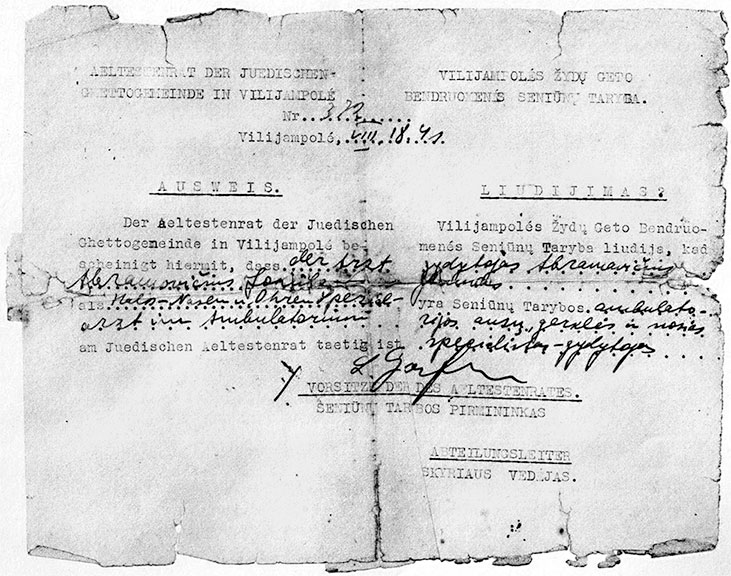 AELTESTENRAT DER JUEDISCHEN-
GHETTOGEMEINDE IN VILIJAMPOLÉ
VILIJAMPOLÉS ŽYDŲ GETO
BENDRUOMENÉS SENIŪNŲ TARYBA.
Nr.
Vilijampolé, VIII. 18. 41.
AUSWEIS.
Der Aeltestenrat der Juedischen
Ghettogemeinde in Vilijampolé be-
scheinigt hiermit, dass der Arzt
Abramovičius
als Hals-Nasen u. Ohren Spezial-
arzt im Ambulatorium
am Juedischen Aeltestenrat taetig ist
LIUDIJIMAS?
Vilijampolés Žydų Geto Bendruo-
menés Seniūnų Taryba liudija, kad
gydytojas Abramavičius
yra Seniūnų Tarybos ambulato-
rijos ausų, gerklės ir nosies
specialistas-gydytojas
VORSITZE DER DES AELTESTENRATES.
SENIŪNŲ TARYBOS PIRMININKAS
ABTEILUNGSLEITER
SKYRIAUS VEDÉJAS.